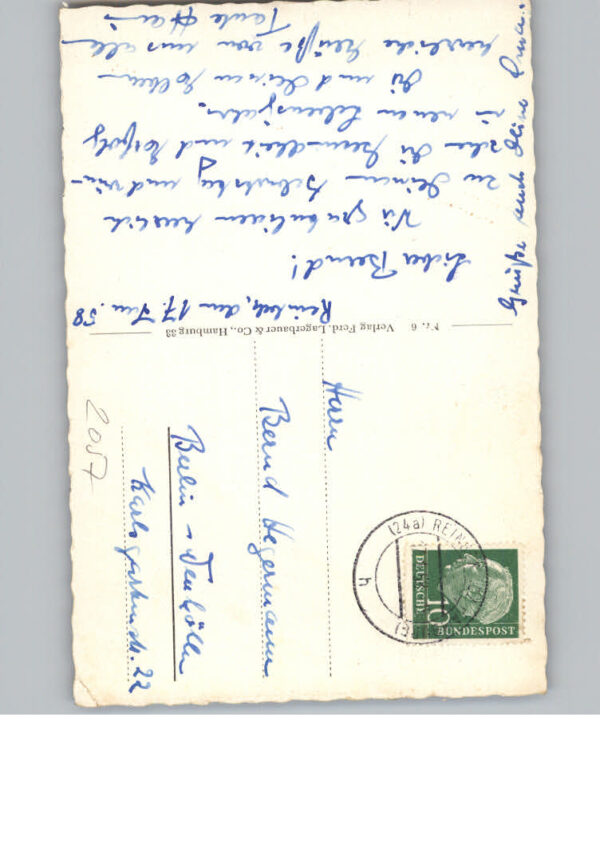 Reinbek, den 17. Jan. 58
Lieber Bernd!
Wir gratulieren herzlich
zu Deinem Geburtstag und wün-
schen Dir Gesundheit und Erfolg
im neuen Lebensjahr.
Dir und Deinen Eltern
herzliche Grüße von uns allen
Tante
Grüße auch Deine Oma.
Nr. 6 Verlag Ferd. Lagerbauer & Co., Hamburg 33
Herrn
Bernd Hegermann
Berlin - Neukölln
Karlsgartenstr. 22
2057
(24a) REINBEK
h
10
DEUTSCHE
BUNDESPOST